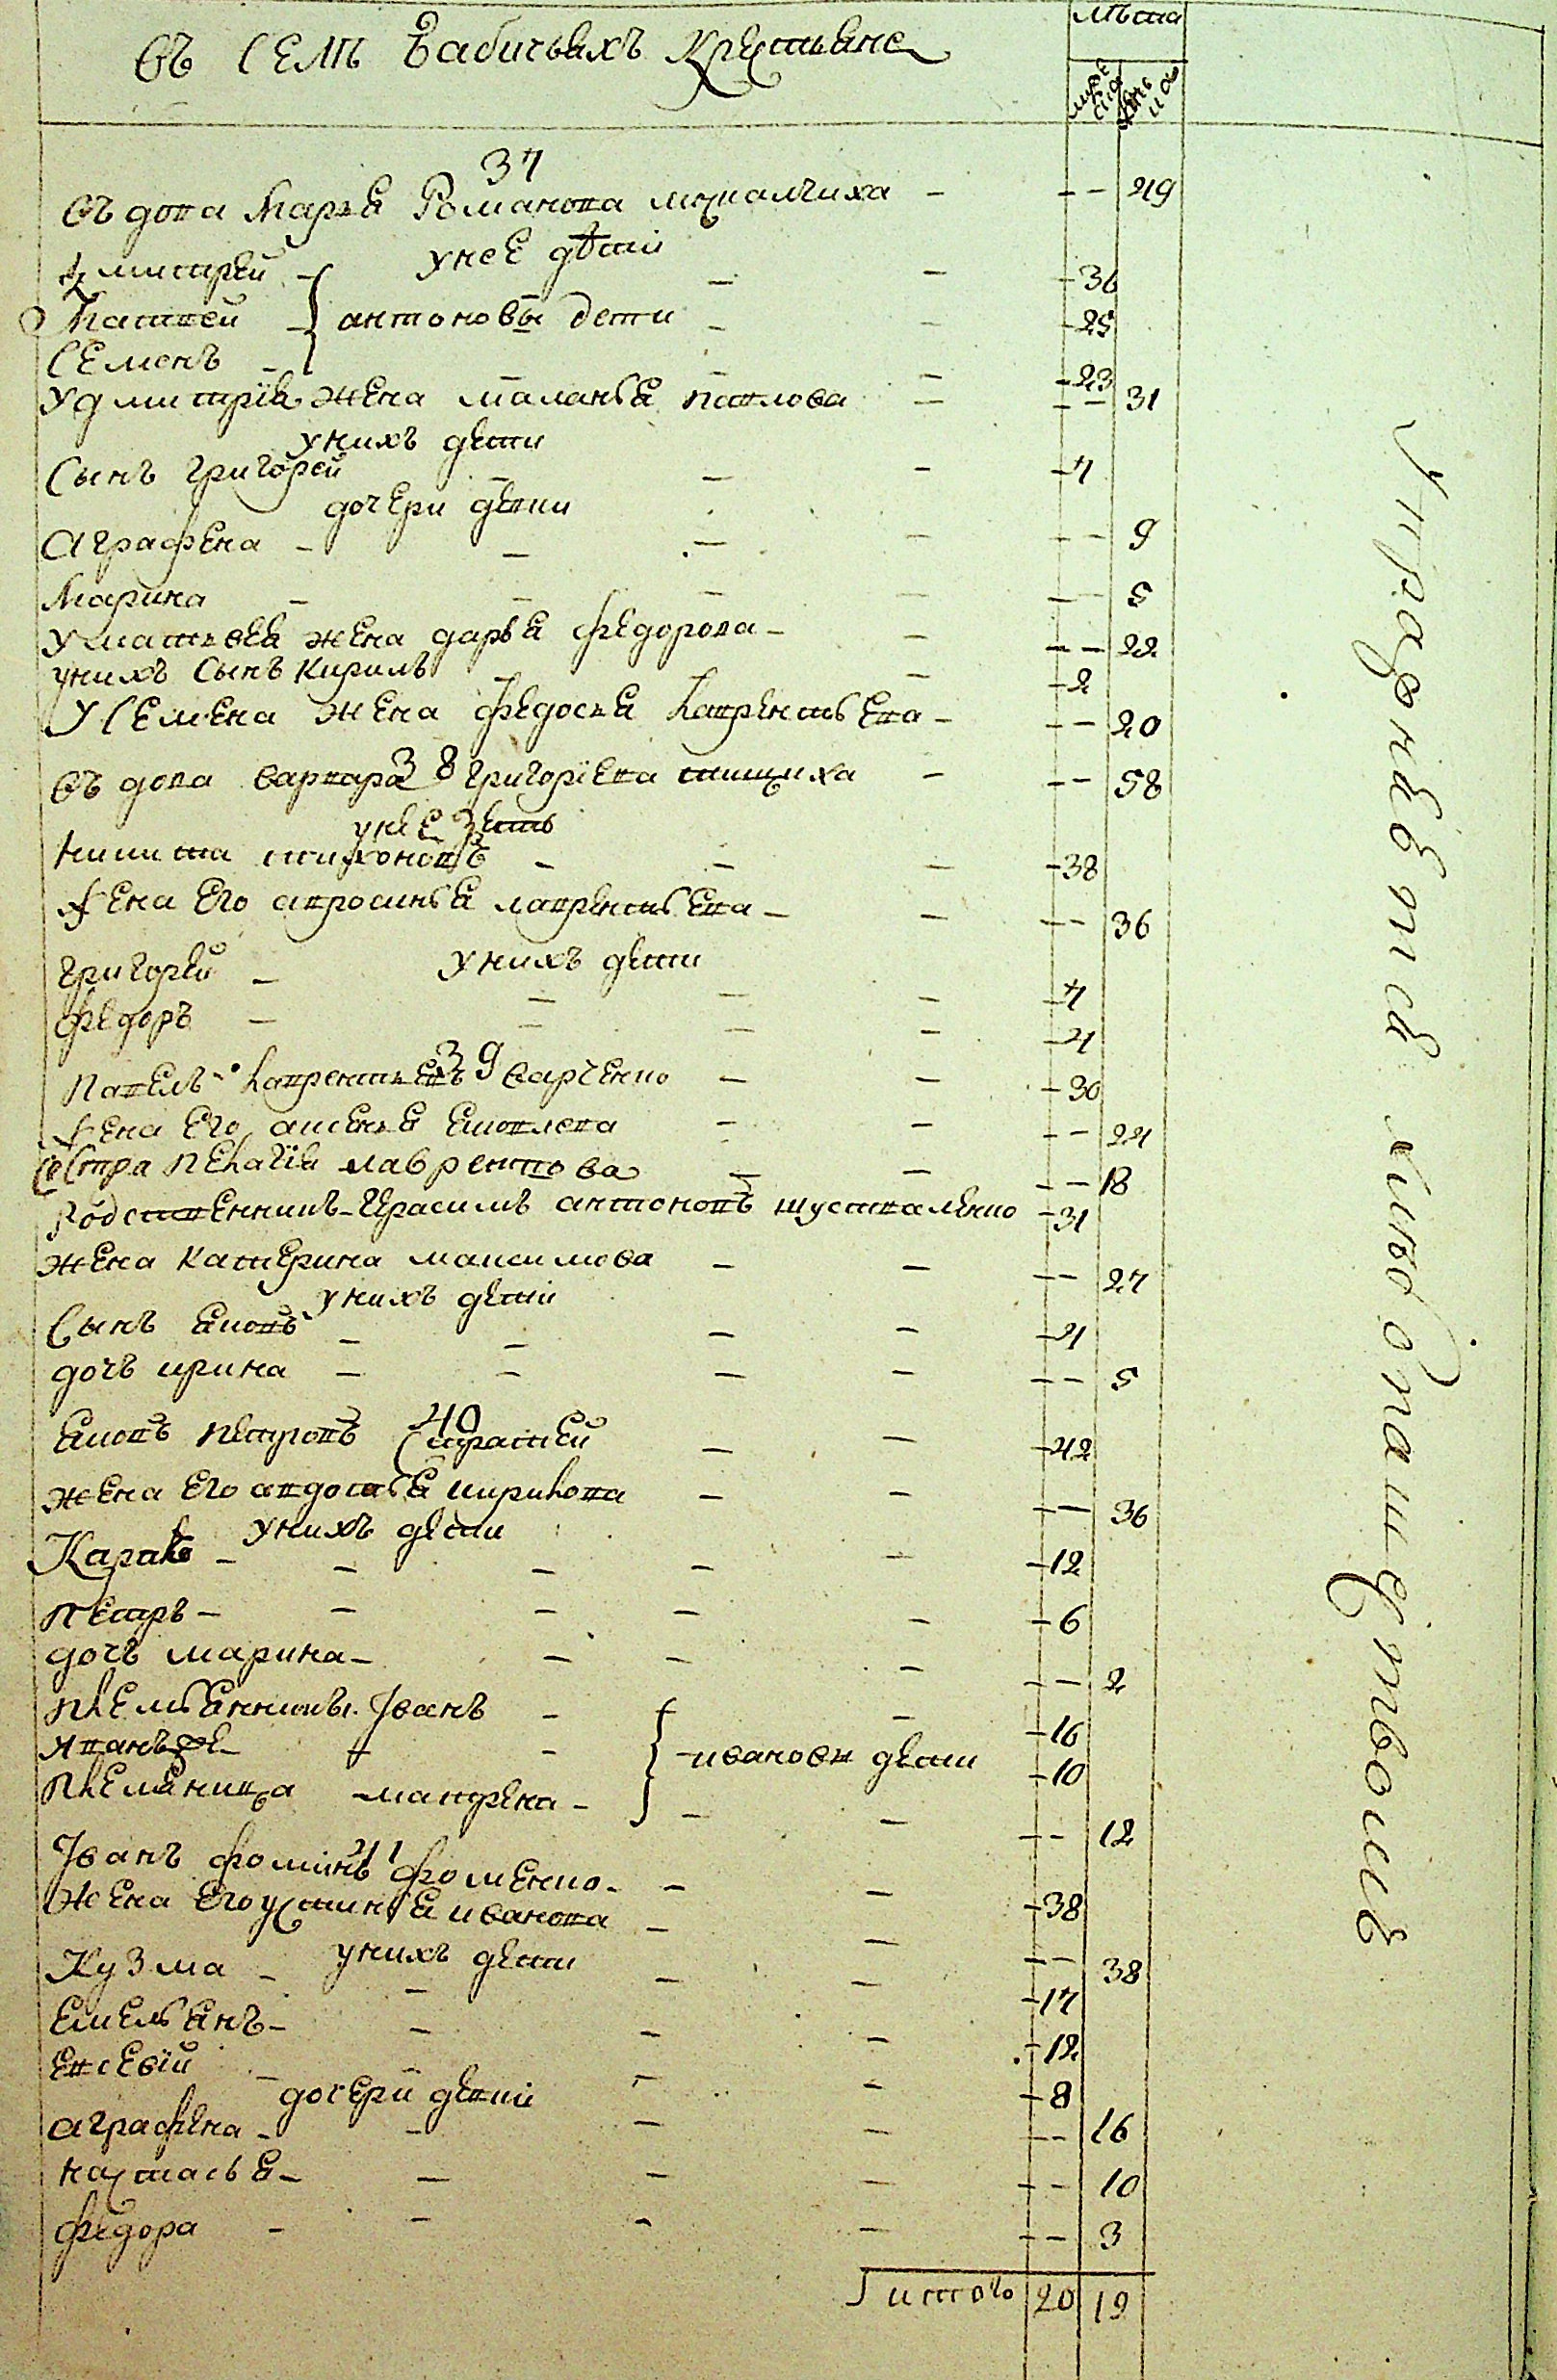 Въ селѣ Бабичьяхъ Крестьяне
лѣта
муже ска
женс ка
37
Въдова Марья Романова
49
унее дѣти
Дмитрей 36
Матвей антоновы дети 25
Семенъ 23
У дмитрїя жена маланья павлова 31
унихъ дети
Сынъ григорей 7
дочери девки
Аграфена 9
Марина 5
У матвея жена дарья федорова 22
унихъ Сынъ Кирилъ 2
У Семена жена федосья Лаврентьева 20
38
Въдова варвара григорїева 58
унее зять
Никита тихоновъ 38
Жена Его апросинья лаврентьева 36
унихъ дети
григорей 7
федоръ 4
39
Павелъ Лаврентьевъ варченко 30
Жена Его аксенья яковлева 24
Сестра пелагїя лаврентова 18
Родственникъ Герасимъ антоновъ шуставленко 31
жена Катерина максимова 27
унихъ дети
Сынъ яковъ 4
дочь ирина 5
40
Яковъ петровъ 42
жена Его авдотья кирилова 36
унихъ дети
12
петръ 6
дочь марина 2
племянники Іванъ 16
ивановы дети 10
племяница мотрена 12
41
Іванъ фоминъ фоменко 38
жена Его устинья иванова 38
унихъ дети
Кузма 17
Емельянъ 12
Евсевїй 8
дочери девки
аграфена 16
настасья 10
федора 3
итого 20 19
Упразняется любопащуствоися